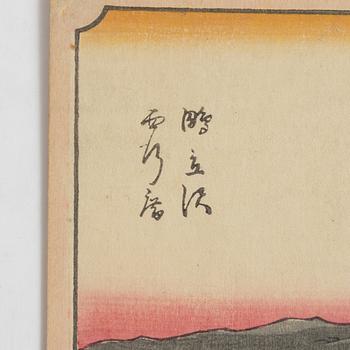 鴫立沢
西行庵